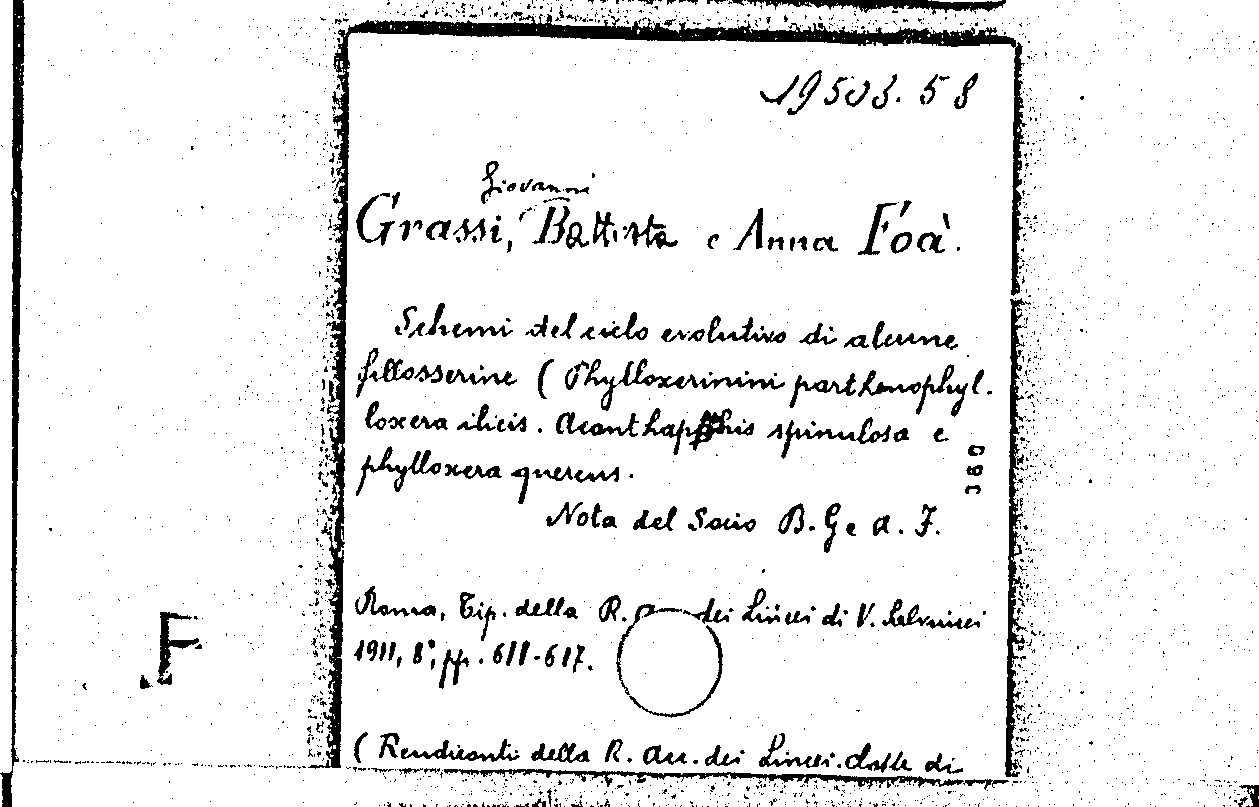 19503.58
Giovanni
Grassi, Battista e Anna Foà.
Schemi del ciclo evolutivo di alcune
fillosserine (Phylloxerinini parthenophyl-
loxera ilicis. Acanthaphis spinulosa e
phylloxera quercus.
380
Nota del Socio B. G e A. F.
Roma, Tip. della R. dei Lincei di V. Salviucci
1911, 8°, pp. 611-617.
F
( Rendiconti della R. Acc. dei Lincei. Classe di